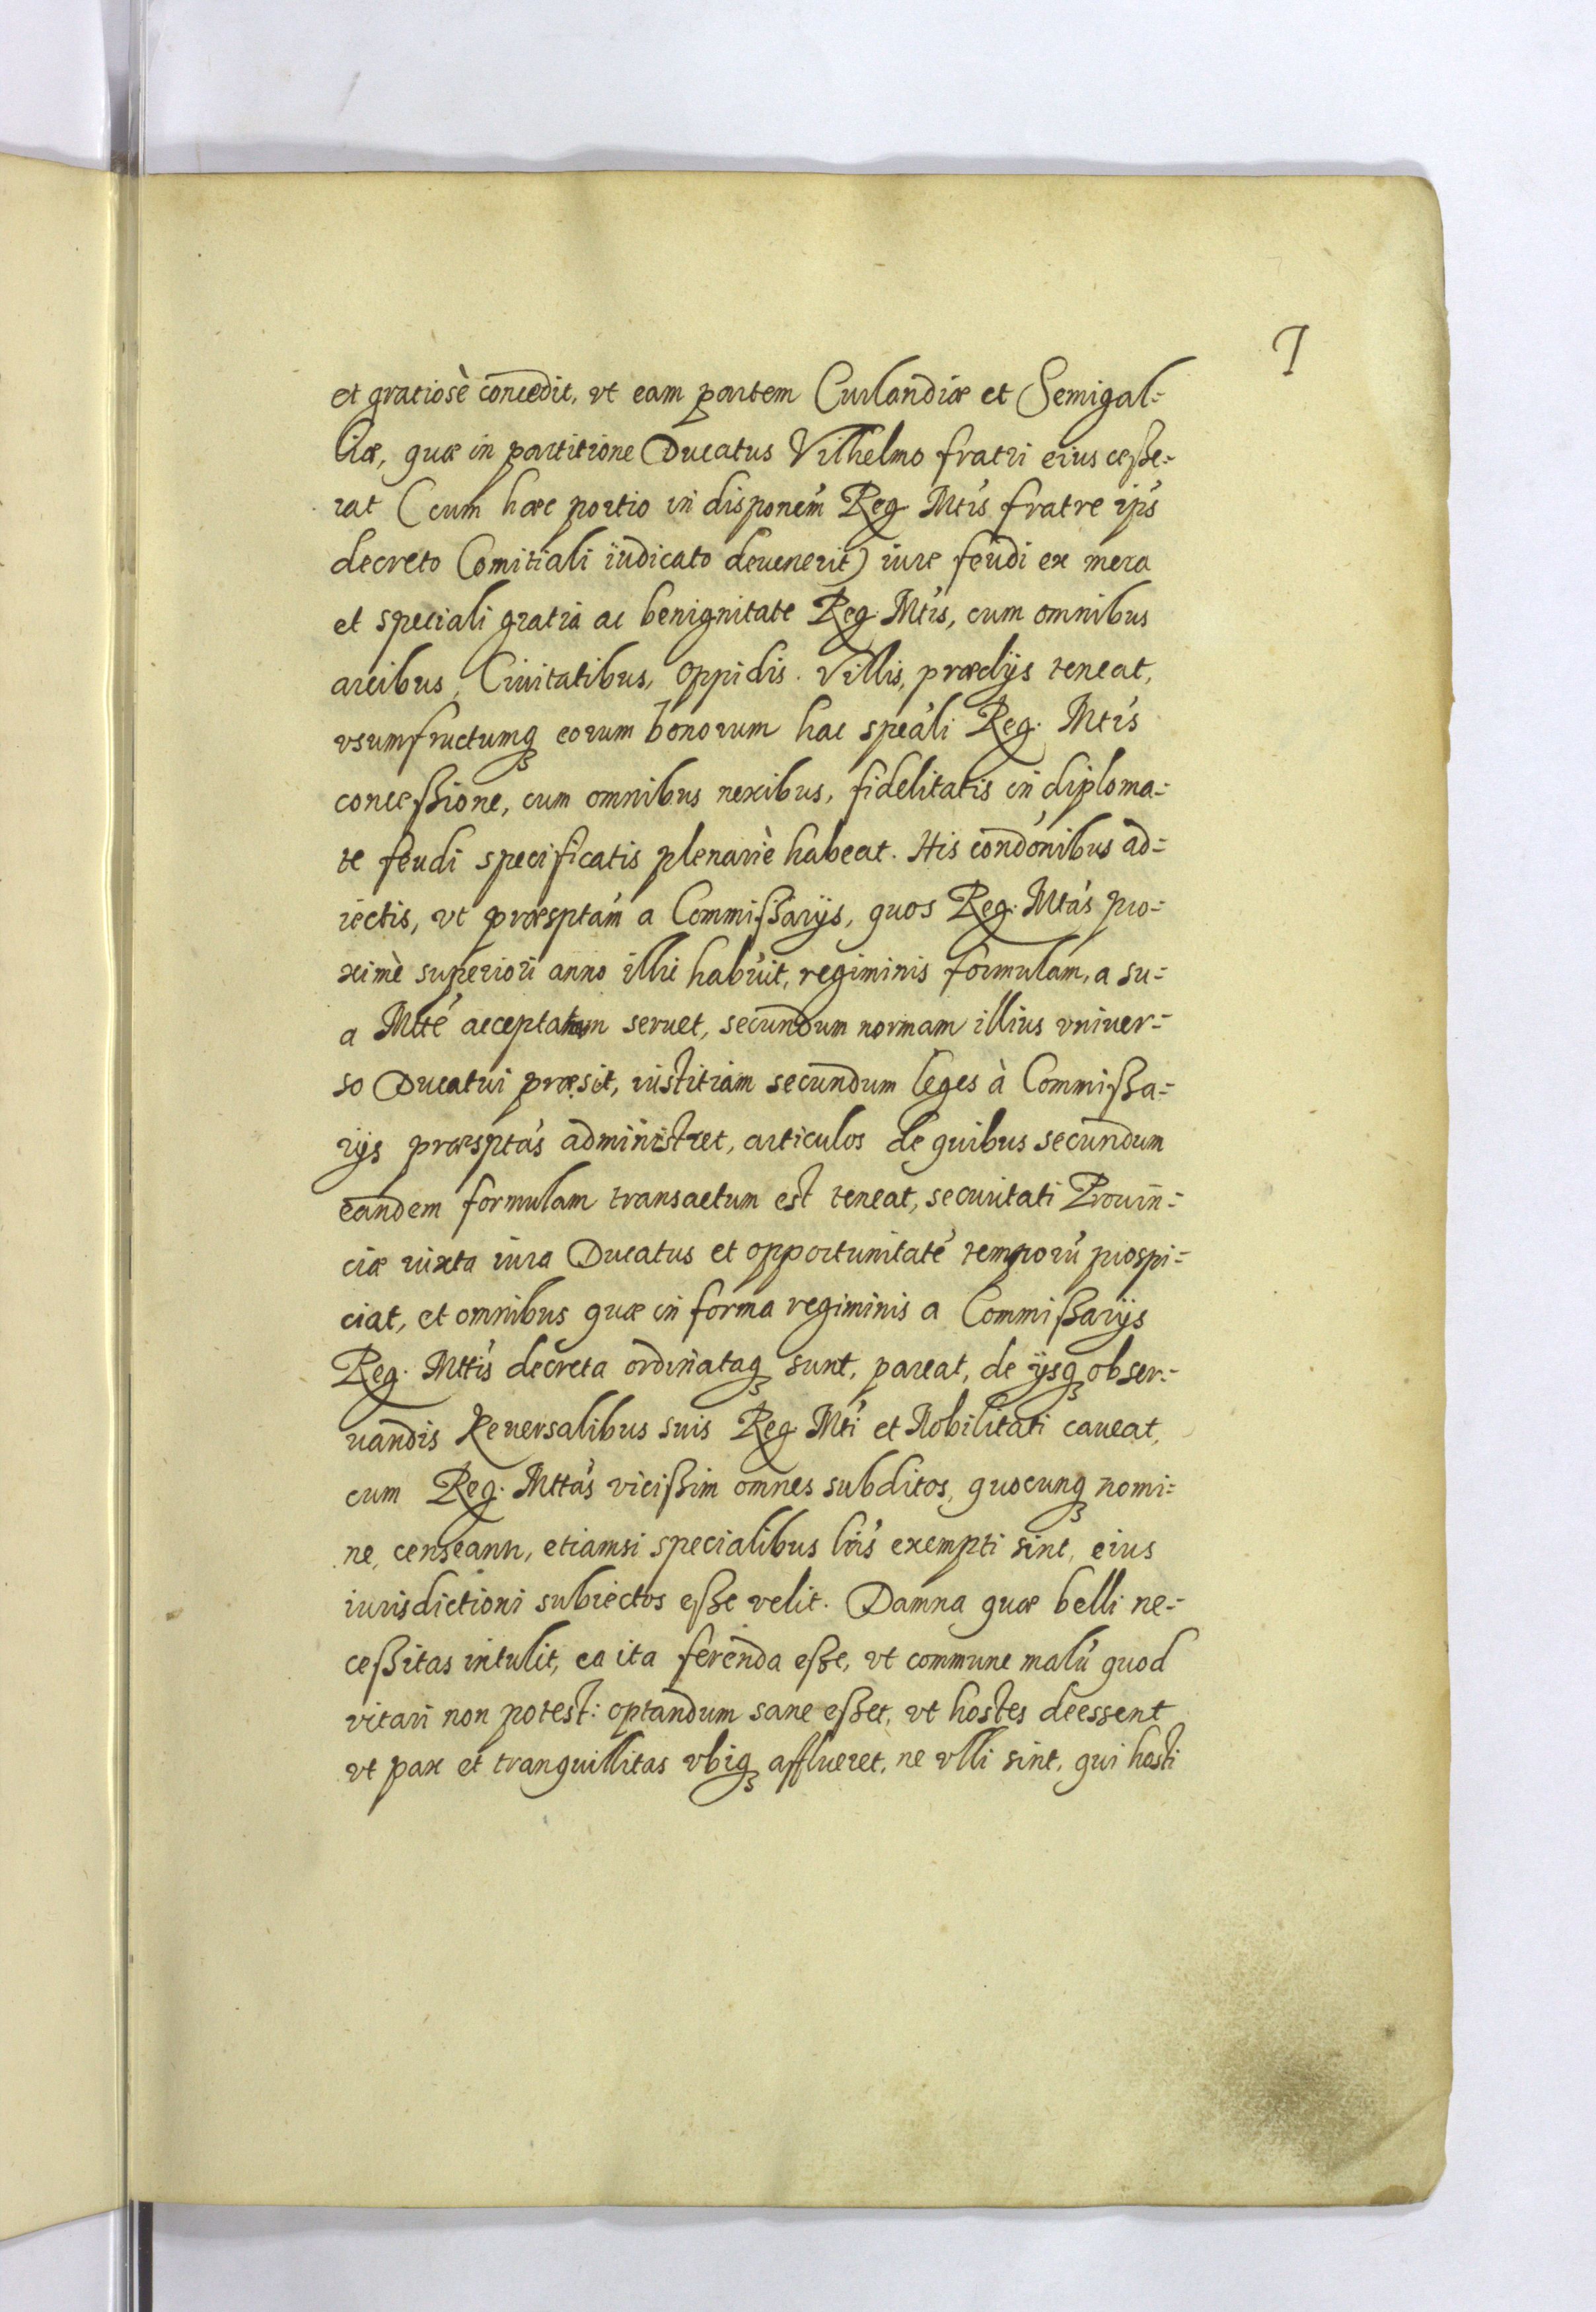 7
et gratiosè concedit, vt eam partem Curlandiæ et Semigal-
liæ, quæ in partitione Ducatus Vilhelmo fratri eius ceße-
rat (cum hæc portio in disponem Reg Mtis fratre ipś
decreto Comitiali iudicato deuenerit) iure feudi ex mera
et speciali gratia ac benignitate Reg. Mtis, cum omnibus
arcibus, Ciuitatibus, oppidis. Villis, prædijs teneat,
vsumfructumq́ eorum bonorum hac speáli Reg. Mtis
conceßione, cum omnibus nexibus, fidelitatis in diploma-
te feudi specificatis plenariè habeat. His condónibus ad-
iectis, vt præsptam a Commißarijs, quos Reg. Mtás pro-
ximè superiori anno illic habuit, regiminis formulam, a su-
a Mtté acceptatam seruet, secundum normam illius vniuer-
so Ducatui præsit, iustitiam secundum leges à Commißa-
rijs præsptás administret, articulos de quibus secundum
eandem formulam transactum est teneat, securitati Prouin-
ciæ iuxta iura Ducatus et opportunitaté temporú prospi-
ciat, et omnibus quæ in forma regiminis a Commißarijs
Reg. Mttis decreta ordinataq́ sunt, pareat, de ijsq́ obser-
uandis Reuersalibus suis Reg. Mti et Nobilitati caueat,
cum Reg. Mttás vicißim omnes subditos, quocunq́ nomi-
ne, censeantr, etiamsi specialibus lris exempti sint, eius
iurisdictioni subiectos eße velit. Damna quæ belli ne-
ceßitas intulit, ea ita ferenda eße, vt commune malú quod
vitari non potest: optandum sane eßet, vt hostes deessent
vt pax et tranquillitas vbiq́ afflueret, ne vlli sint, qui hosti